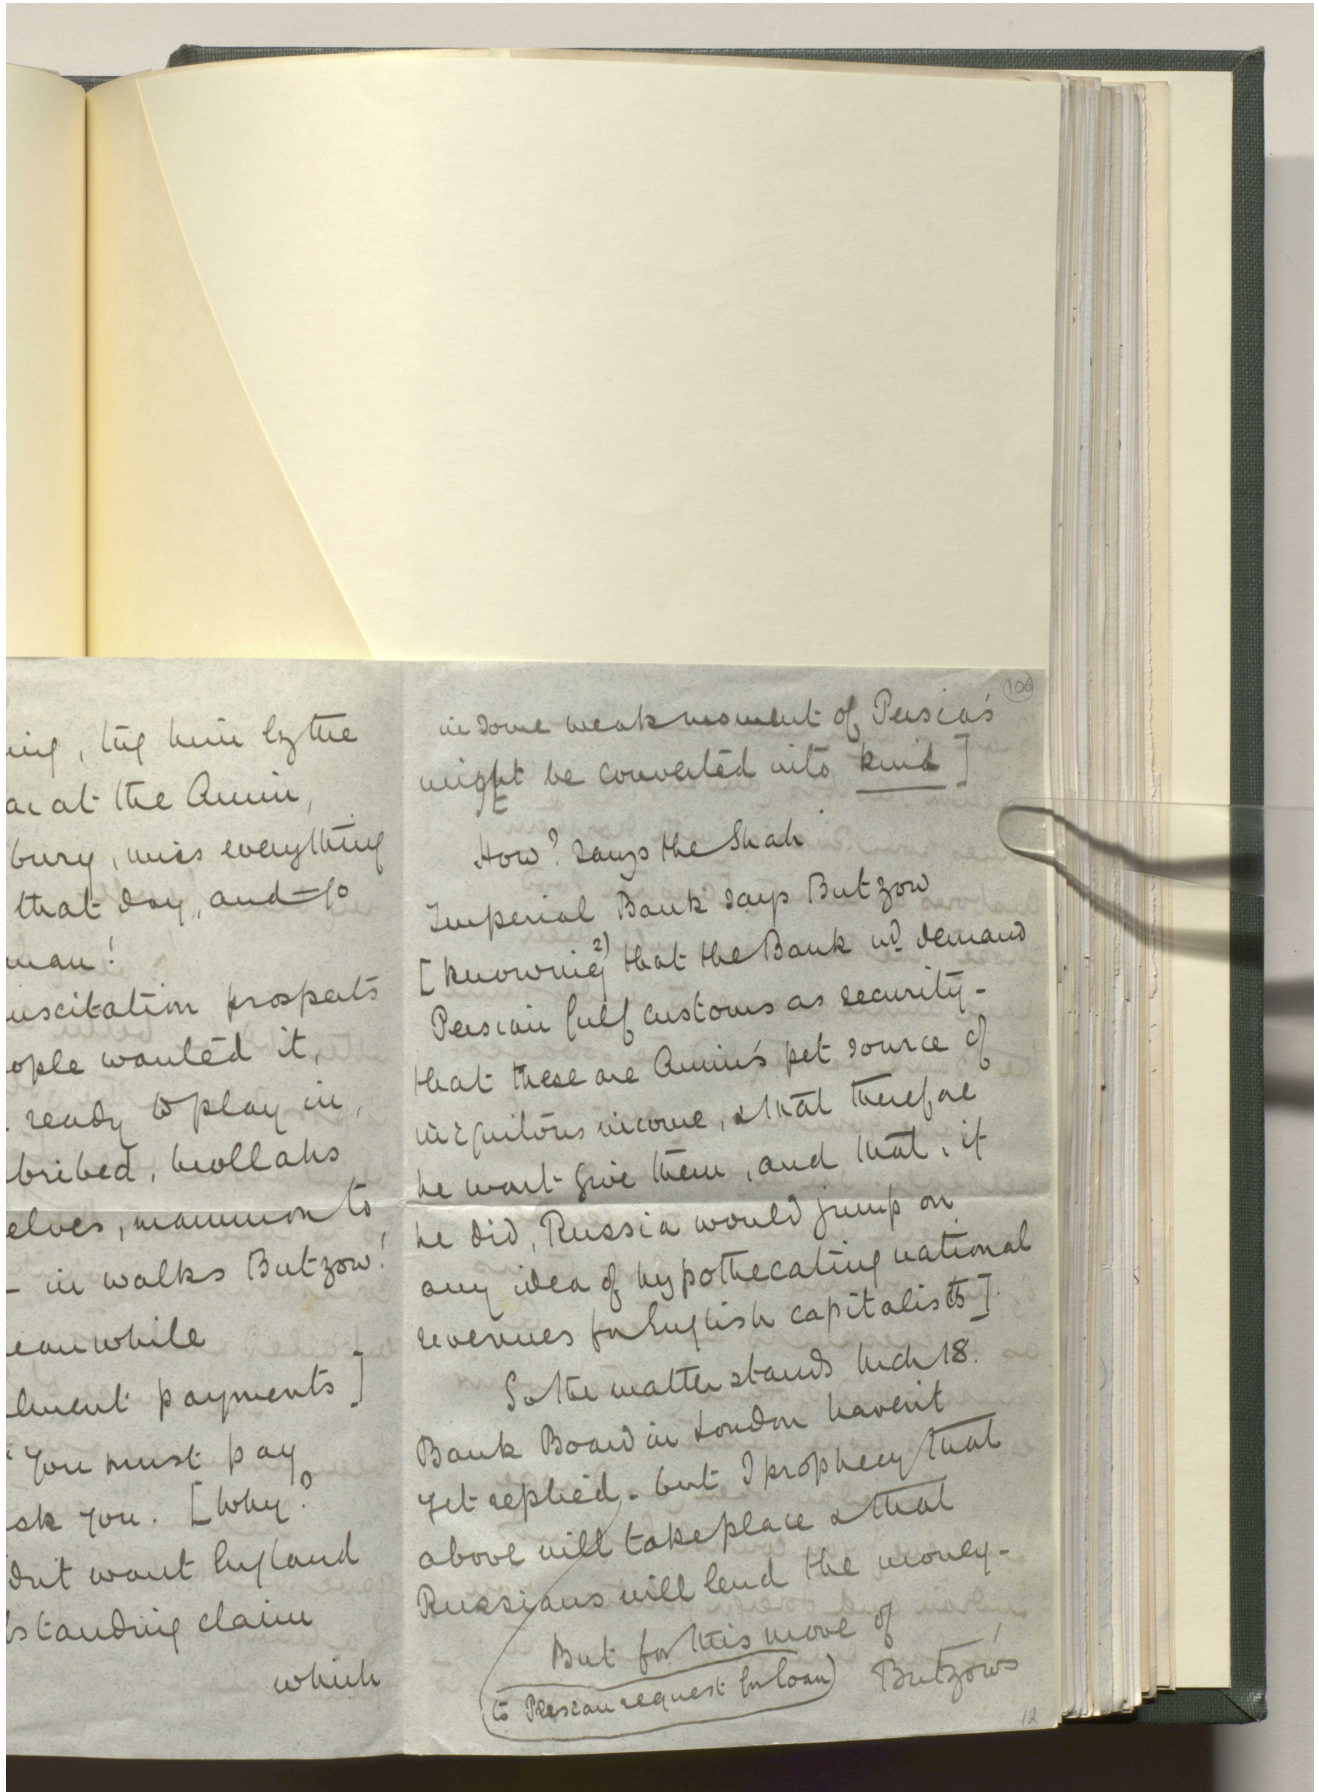 , tug him by the
at the Amin,
bury, miss everything
that day, and - so
man!
uscitation prospects
ople wanted it,
ready to play in,
bribed, mollahs
elves, mammon to
- in walks Butzow!
eanwhile
lment payments]
"You must pay
sk you. [Why?
dn't want England
tstanding claim
which
106
in some weak moment of Persia's
might be converted into kind]
How? says the Shah
Imperial Bank says Butzow
[knowing 2) that the Bank wd demand
Persian Gulf customs as security -
that these are Amin's pet source of
iniquitous income, & that therefore
he wont give them, and that, if
he did, Russia would jump on
any idea of hypothecating national
revenues for English capitalists].
So the matter stands Mch 18.
Bank Board in London haven't
yet replied - but I prophecy that
above will take place & that
Russians will lend the money -
But for this move of
to Persian request for loan) Butzow's
12